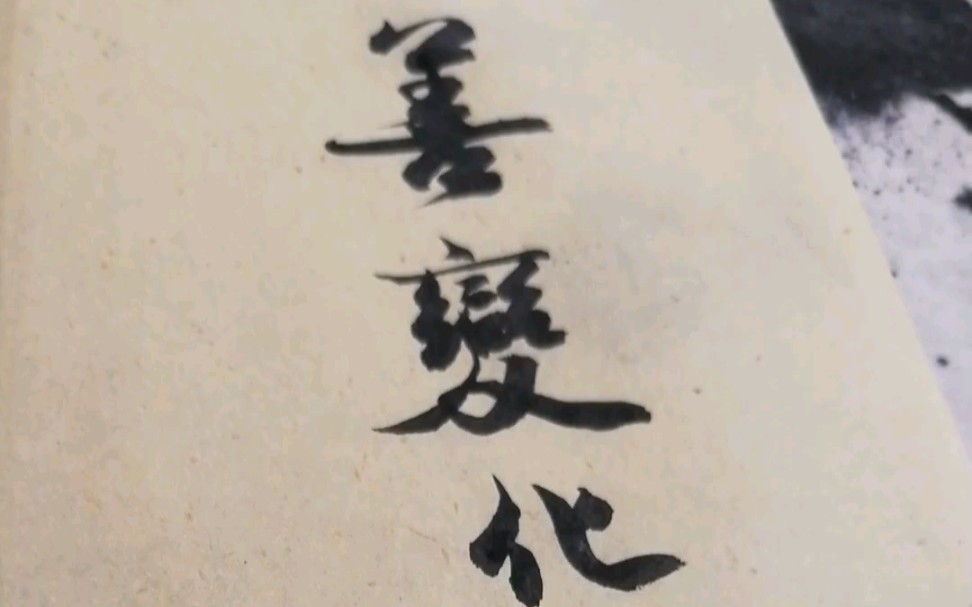 善變化